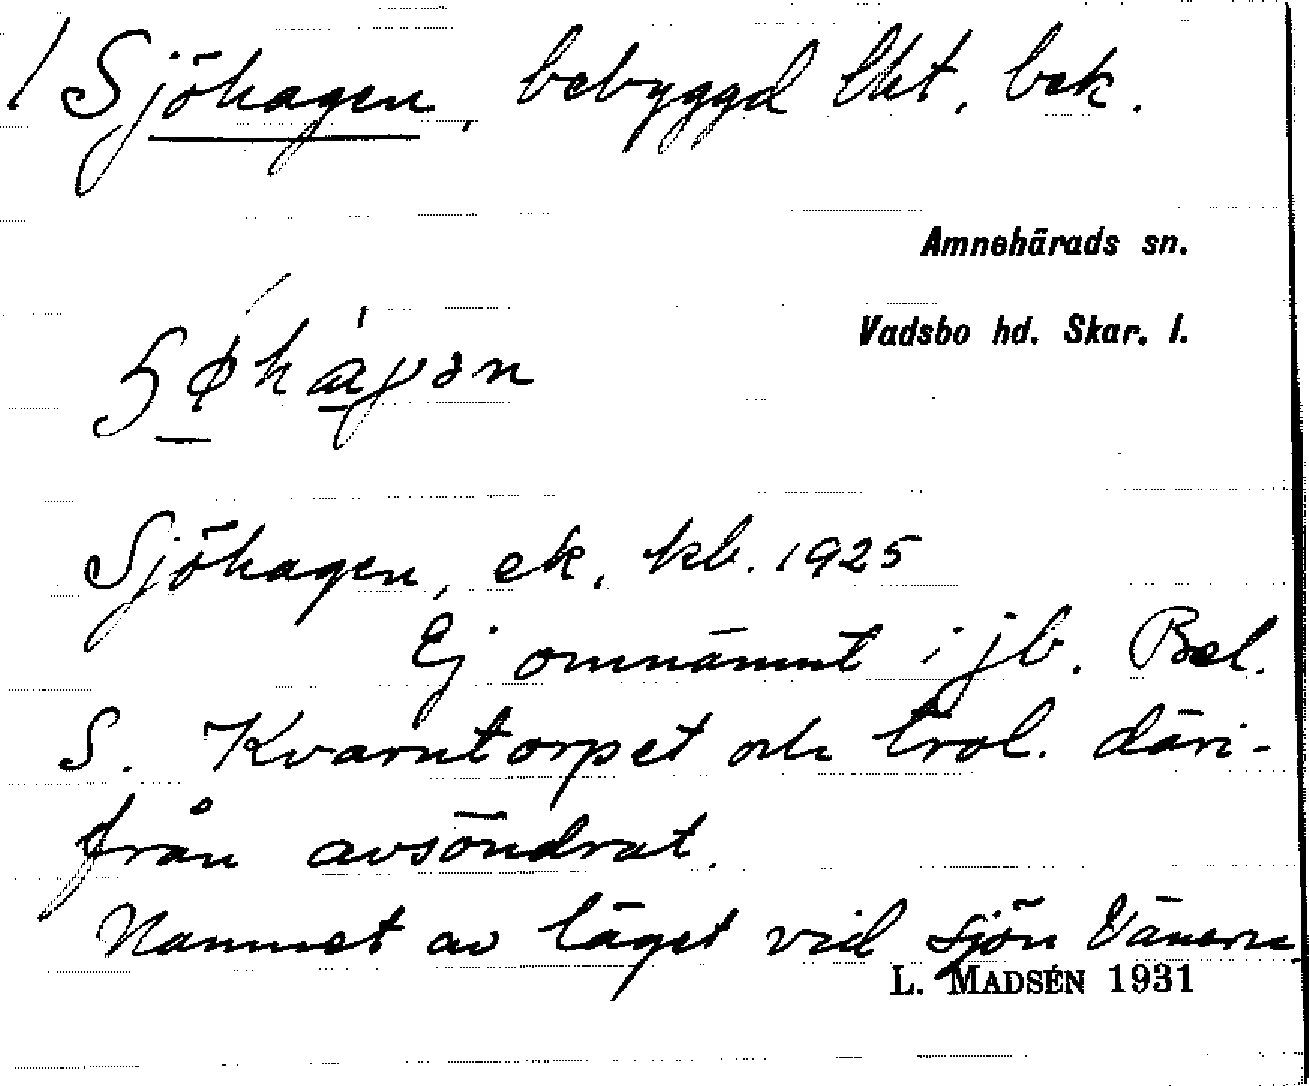 1 Sjöhagen, bebyggd lht, bek.
Amnehärads sn.
Vadsbo hd. Skar. l.
Sjöhagen, ek, kb. 1925
Ej omnämnt i jb. Bel.
S. Kvarntorpet och trol. däri-
från avsöndrat.
Namnet av läget vid sjön Vänern.
L. MADSÉN 1931